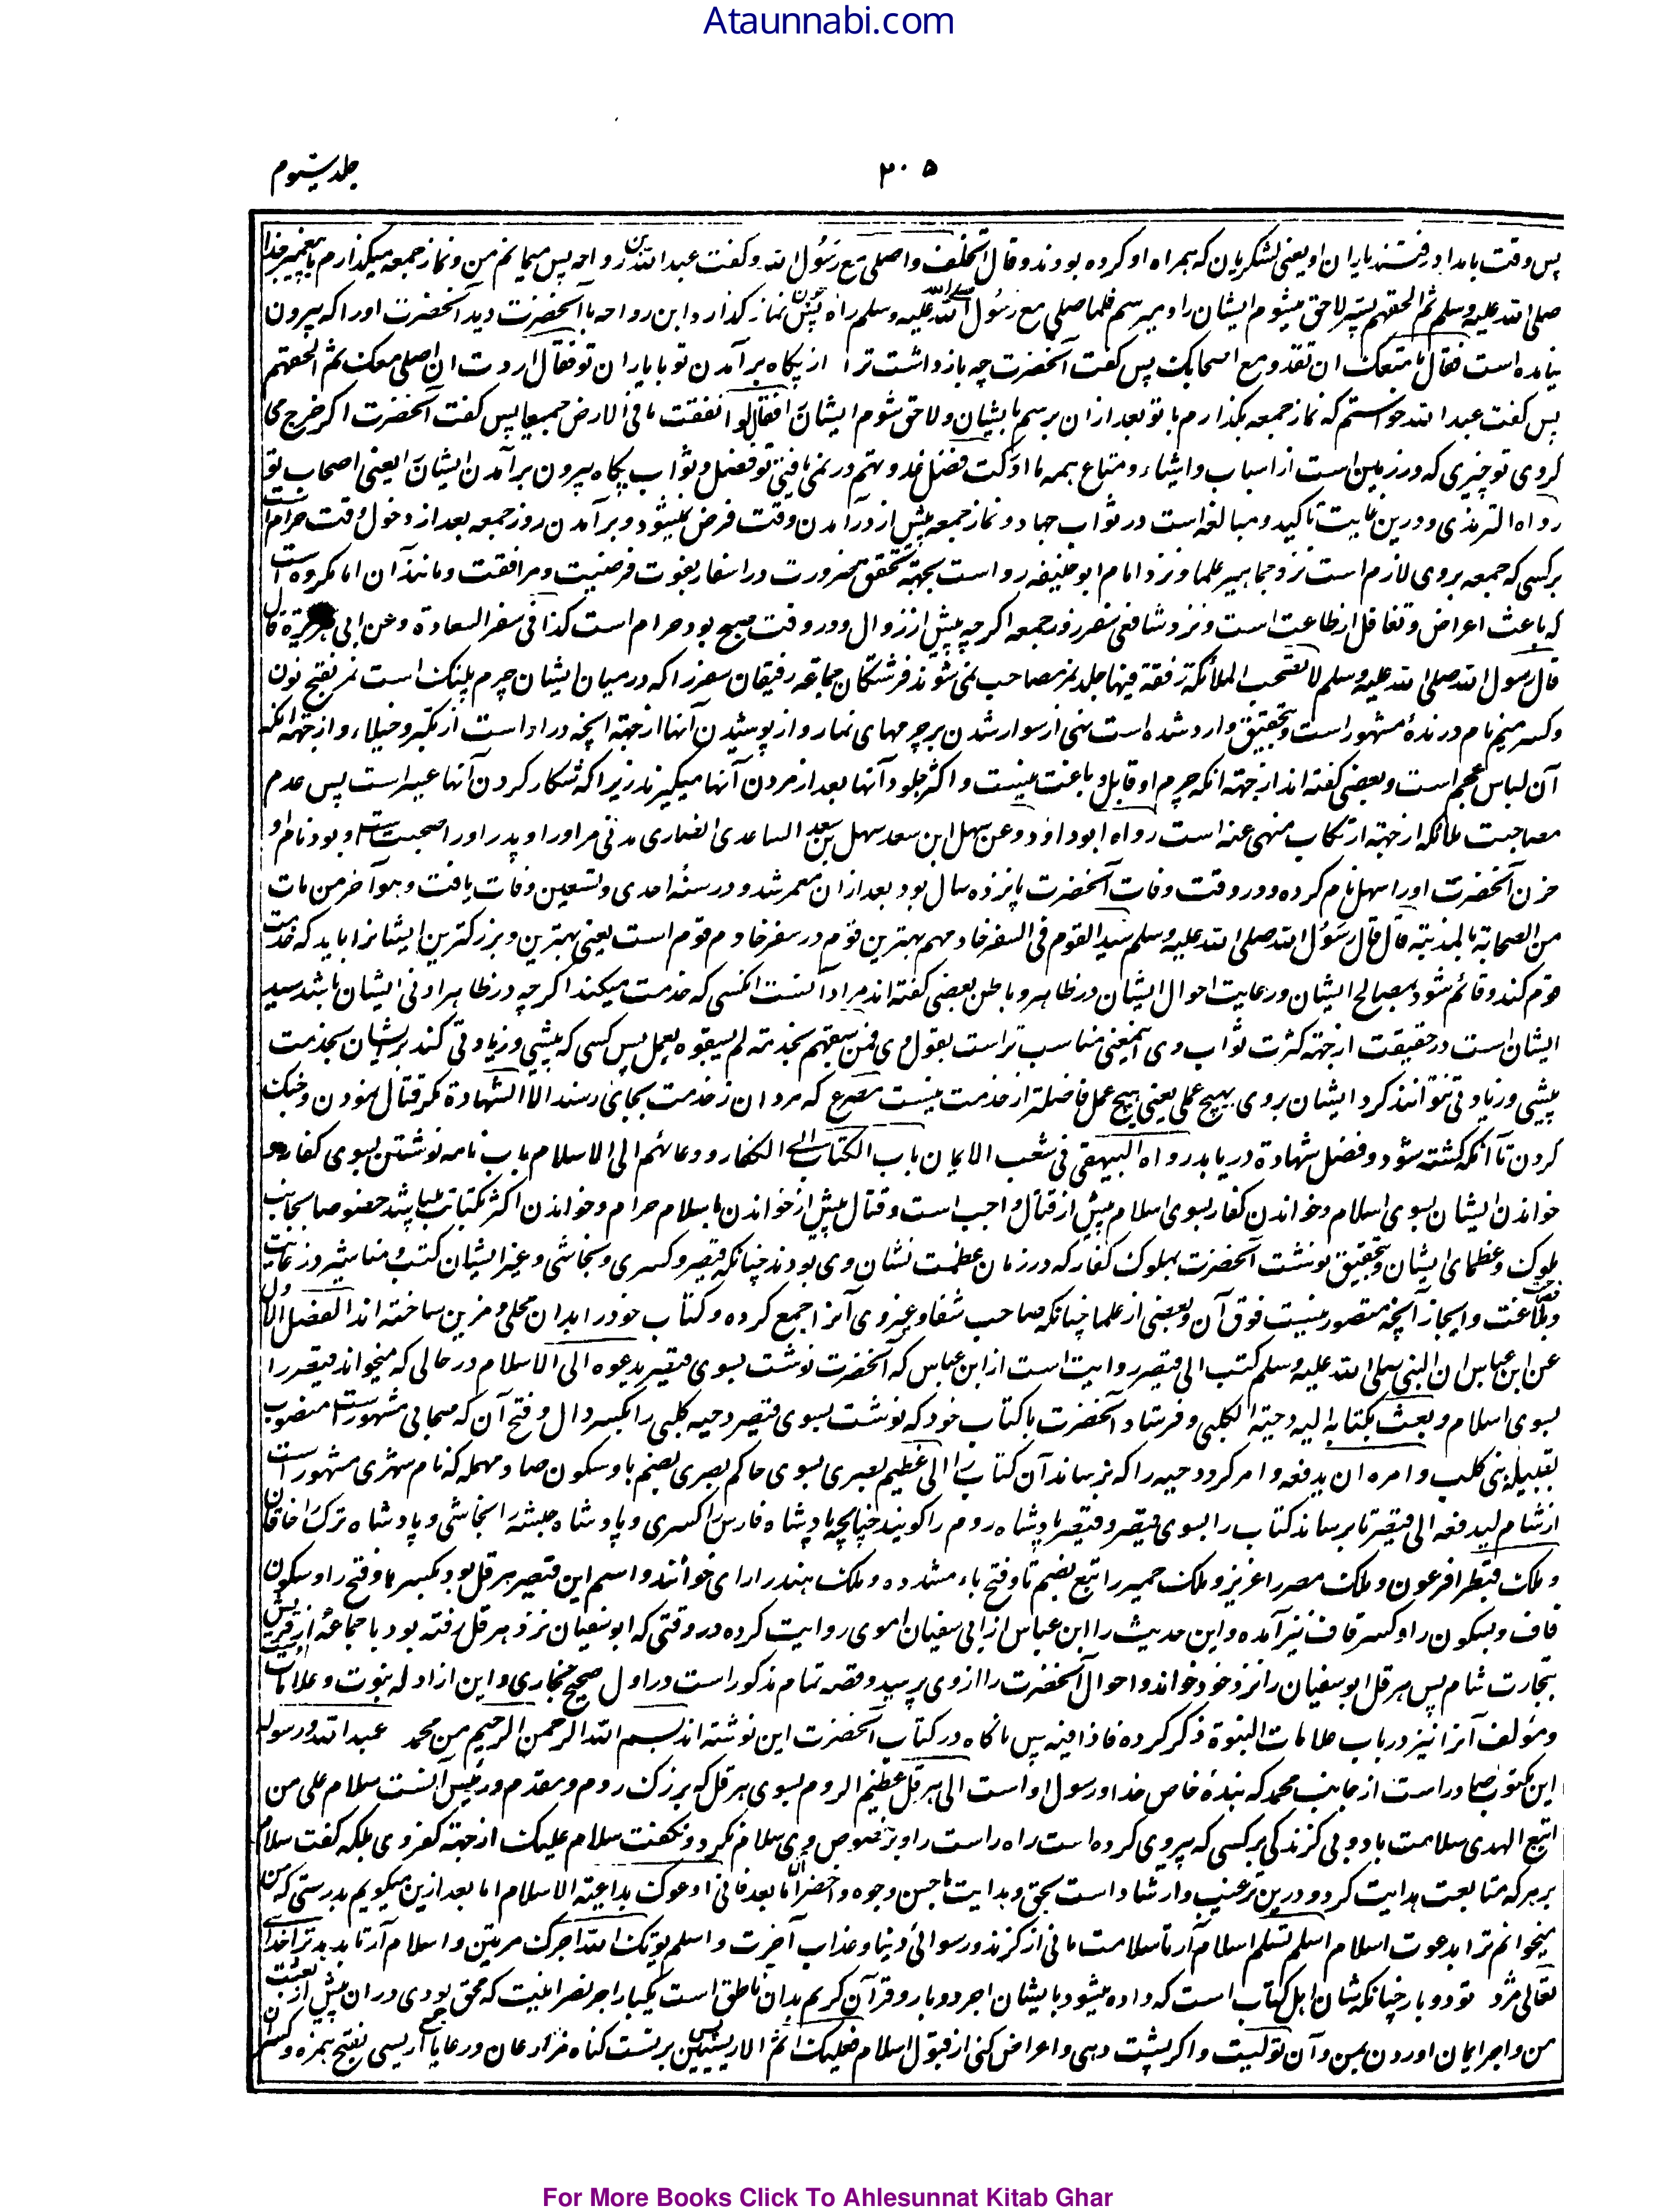 Ataunnabi.com
جلد سیوم
۳۰۵
پس وقت بامداد رفتند یاران او یعنی لشکریان که همراه او کرده بودند وقال اتخلف واصلی مع رسول الله وگفت عبدالله بن رواحه پس میمانم من ونماز جمعه میگذارم با پیغمبر خدا
صلی الله علیه وسلم ثم الحقهم پستر لاحق میشوم ایشان را ومیرسم فلما صلی مع رسول الله صلی الله علیه وسلم راه پس چون نماز گذارد ابن رواحه با آنحضرت دید آنحضرت او را که بیرون
نیامده است فقال ما منعک ان تغدو مع اصحابک پس گفت آنحضرت چه بازداشت ترا از پگاه برآمدن تو با یاران تو فقال اردت ان اصلی معک ثم الحقهم
پس گفت عبدالله خواستم که نماز جمعه بگذارم با تو بعد ازان برسم بایشان ولاحق شوم ایشان را فقال لو انفقت ما فی الارض جمیعا پس گفت آنحضرت اگر خرج می
کردی تو چیزی که در زمین است از اسباب واشیاء ومتاع همه ما ادرکت فضل غدوتهم در نمی یافتی تو فضل وثواب پگاه بیرون برآمدن ایشان را یعنی اصحاب تو
رواه الترمذی ودرین غایت تاکید ومبالغه است در ثواب جهاد ونماز جمعه پیش از درآمدن وقت فرض نمیشود وبرآمدن روز جمعه بعد از دخول وقت حرام است
برکسی که جمعه بروی لازم است نزد جماهیر علما ونزد امام ابوحنیفه رواست بجهة تحقق ضرورت در اسفار بفوت فرضیت ومرافقت ومانند آن اما مکروه است
که باعث اعراض وتغافل از طاعت است ونزد شافعی سفر روز جمعه اگرچه پیش از زوال ودر وقت صبح بود حرام است کذا فی سفر السعادة وعن ابی هریرة قال
قال رسول الله صلی الله علیه وسلم لا تصحب الملائکة رفقة فیها جلد نمر مصاحب نمی شوند فرشتگان جماعه رفیقان سفر را که درمیان ایشان چرم پلنگ است نمر بفتح نون
وکسر میم نام درنده مشهور است وبتحقیق وارد شده است نهی از سوار شدن بر چرمهای نمار واز پوشیدن آنها از جهة آنچه درو است از تکبر وخیلاء واز جهة آنکه
آن لباس عجم است وبعضی گفته اند از جهة آنکه چرم او قابل دباغت نیست واکثر جلود آنها بعد از مردن آنها میگیرند زیرا که شکار کردن آنها عسیر است پس عدم
مصاحبت ملائکه از جهة ارتکاب منهی عنه است رواه ابوداود وعن سهل ابن سعد سهل بن سعد الساعدی انصاری مدنی مر او را وپدر او را صحبت است وبود نام او
حزن آنحضرت او را سهل نام کرده ودر وقت وفات آنحضرت پانزده سال بود بعد ازان معمر شد ودر سنه احدی وتسعین وفات یافت وهو آخر من مات
من الصحابة بالمدینة قال قال رسول الله صلی الله علیه وسلم سید القوم فی السفر خادمهم بهترین قوم در سفر خادم قوم است یعنی بهترین وبزرگترین ایشانرا باید که خدمت
قوم کند وقائم شود بمصالح ایشان ورعایت احوال ایشان در ظاهر وباطن بعضی گفته اند مراد آنست آنکسی که خدمت میکند اگرچه در ظاهر ادنی ایشان باشد سید
ایشان است در حقیقت از جهة کثرت ثواب وی اینمعنی مناسب تر است بقول وی فمن سبقهم بخدمة لم یسبقوه بعمل پس کسی که پیشی وزیادتی کند بر ایشان بخدمت
پیشی وزیادتی نتوانند کرد ایشان بروی بهیچ عملی یعنی هیچ عمل فاضلتر از خدمت نیست مصرع که مردان ز خدمت بجای رسند الا الشهادة مگر قتال نمودن وجنگ
کردن تا آنکه کشته شود وفضل شهادة دریابد رواه البیهقی فی شعب الایمان باب الکتاب الی الکفار ودعائهم الی الاسلام باب نامه نوشتن بسوی کفار و
خواندن ایشان بسوی اسلام وخواندن کفار بسوی اسلام پیش از قتال واجب است وقتال پیش از خواندن باسلام حرام وخواندن اکثر بکتابت میباشد خصوصا بجانب
ملوک وعظمای ایشان وبتحقیق نوشت آنحضرت بملوک کفار که در زمان عظمت نشان وی بودند چنانکه قیصر وکسری ونجاشی وغیر ایشان کتب ومناشیر در غایت فصاحت
وبلاغت وایجاز آنچه متصور نیست فوق آن وبعضی از علما چنانکه صاحب شفا وغیر وی آنرا جمع کرده وکتاب خود را بدان محلی ومزین ساخته اند الفصل الاول
عن ابن عباس ان النبی صلی الله علیه وسلم کتب الی قیصر روایت است از ابن عباس که آنحضرت نوشت بسوی قیصر یدعوه الی الاسلام درحالی که میخواند قیصر را
بسوی اسلام وبعث بکتابه الیه دحیة الکلبی وفرستاد آنحضرت با کتاب خود که نوشت بسوی قیصر دحیه کلبی را بکسر دال وفتح آن که صحابی مشهور است منسوب
بقبیله بنی کلب وامره ان یدفعه وامر کرد دحیه را که برساند آن کتاب را الی عظیم بصری بسوی حاکم بصری بضم با وسکون صاد مهمله که نام شهری مشهور است
از شام لیدفعه الی قیصر تا برساند کتاب را بسوی قیصر وقیصر پادشاه روم را گویند چنانچه پادشاه فارس را کسری وپادشاه حبشه را نجاشی وپادشاه ترک را خاقان
وملک قبط را فرعون وملک مصر را عزیز وملک حمیر را تبع بضم تا وفتح باء مشدده وملک هند را رای خوانند واسم این قیصر هرقل بود بکسر ها وفتح را وسکون
قاف وبسکون را وکسر قاف نیز آمده واین حدیث را ابن عباس از ابی سفیان اموی روایت کرده در وقتی که ابوسفیان نزد هرقل رفته بود با جماعه از قریش
بتجارت شام پس هرقل ابوسفیان را نزد خود خواند واحوال آنحضرت را از وی پرسید وقصه تمام مذکور است در اول صحیح بخاری واین از ادله نبوت وعلامات آنست
ومولف آنرا نیز در باب علامات النبوة ذکر کرده فاذا فیه پس ناگاه در کتاب آنحضرت این نوشته اند بسم الله الرحمن الرحیم من محمد عبدالله ورسوله
این مکتوب صادر است از جانب محمد که بنده خاص خدا ورسول او است الی هرقل عظیم الروم بسوی هرقل که بزرگ روم ومقدم ورئیس آنست سلام علی من
اتبع الهدی سلامت باد وبی گزندگی بر کسی که پیروی کرده است راه راست را وبخصوص وی سلام نکرد ونگفت سلام علیک از جهة کفر وی بلکه گفت سلام
بر هر که متابعت هدایت کرد ودرین ترغیب وارشاد است بحق وهدایت باحسن وجوه واخصر آن اما بعد فانی ادعوک بداعیة الاسلام اما بعد ازین میگویم بدرستی که من
میخوانم ترا بدعوت اسلام اسلم تسلم اسلام آر تا سلامت مانی از گزند ورسوائی دنیا وعذاب آخرت واسلم یؤتک الله اجرک مرتین واسلام آر تا بدهد ترا خدای
تعالی مزد تو دوبار چنانکه شان اهل کتاب است که داده میشود بایشان اجر دوبار وقرآن کریم بدان ناطق است یکبار اجر نصرانیت که محق بودی دران پیش از بعثت
من واجر ایمان آوردن بمن وآن تولیت واگر پشت دهی واعراض کنی از قبول اسلام فعلیک اثم الاریسیین پس برتست گناه مزارعان ورعایا جمع اریسی بفتح همزه وکسر
For More Books Click To Ahlesunnat Kitab Ghar